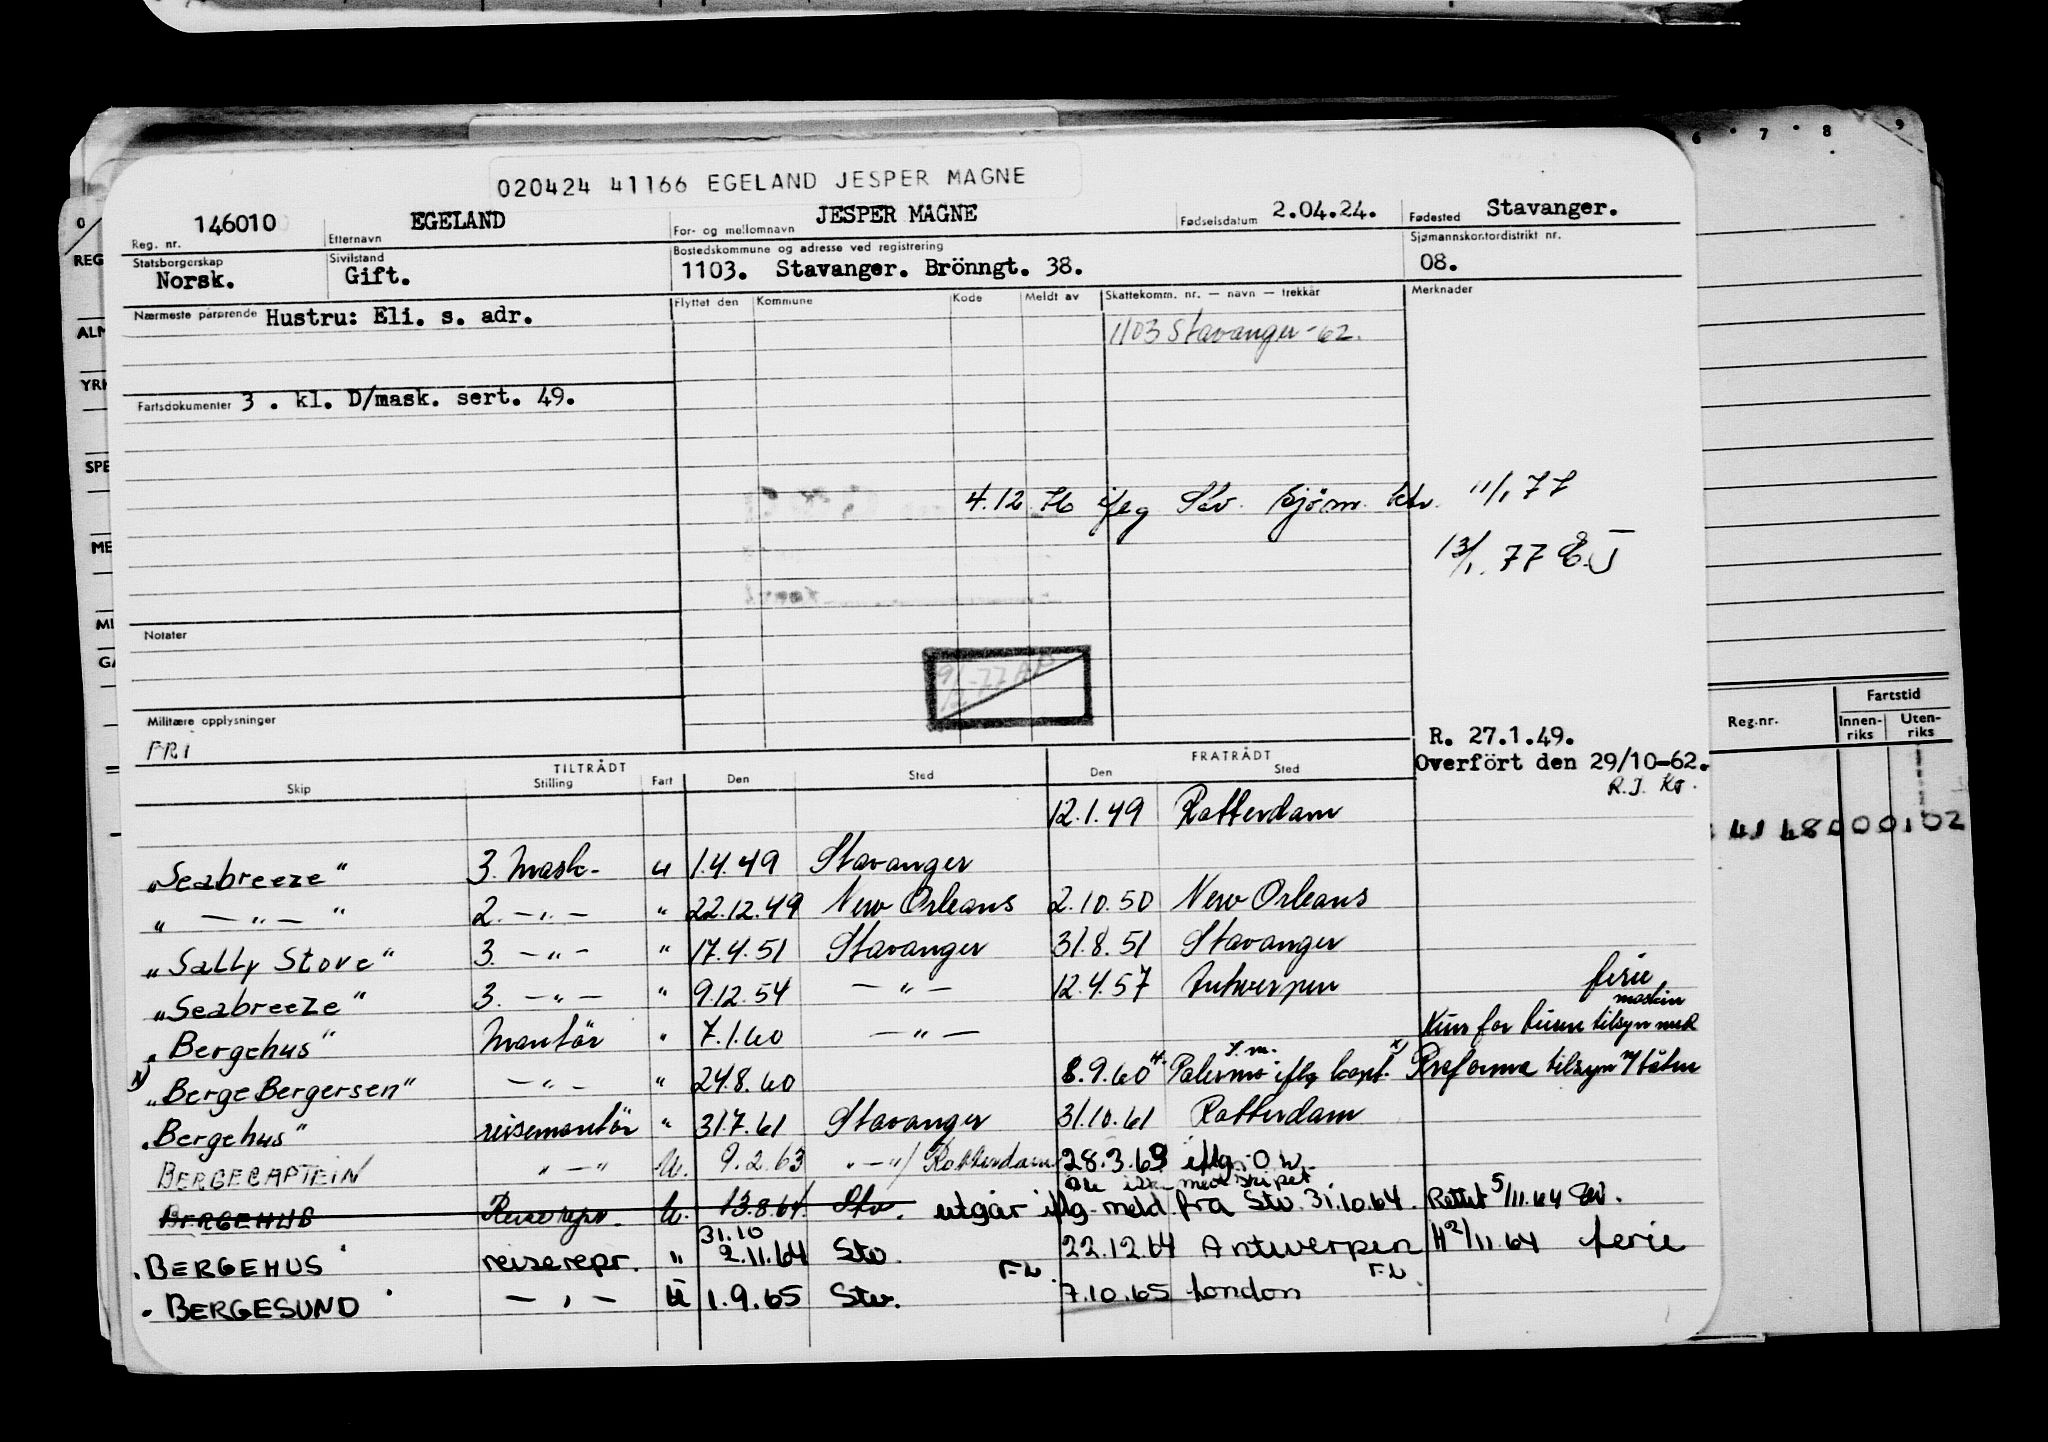 6 7 8 9
020424 41166 EGELAND JESPER MAGNE
0
REG
ALM
YRK
SPE
ME
MI
GA
Reg. nr. 146010 Etternavn EGELAND For- og mellomnavn JESPER MAGNE Fødselsdatum 2.04.24. Fødested Stavanger.
Statsborgerskap Norsk. Sivilstand Gift. Bostedskommune og adresse ved registrering 1103. Stavanger. Brönngt. 38. Sjømannskontordistrikt nr. 08.
Nærmeste pårørende Hustru: Eli. s. adr. Flyttet den Kommune Kode Meldt av Skattekomm. nr. — navn — trekkår Merknader
1103 Stavanger -62.
Fartsdokumenter 3 . kl. D/mask. sert. 49.
4.12 76 ifлg Stv. Sjöm. ktr. 11/1 77
13/1. 77 E.J
Notater
Militære opplysninger
FRI
R. 27.1.49.
Overfört den 29/10-62.
R.J. Ko.
Reg.nr. Fartstid
Innen-riks Uten-riks
41 48000102
TILTRÅDT FRATRÅDT
Skip Stilling Fart Den Sted Den Sted
12.1.49 Rotterdam
"Seabreeze" 3. mask. u 1.4.49 Stavanger
" — " — " 2. — " — " 22.12.49 New Orleans 2.10.50 New Orleans
"Sally Stove" 3. — " — " 17.4.51 Stavanger 31.8.51 Stavanger
"Seabreeze" 3. — " — " 9.12.54 — " — 12.4.57 Antwerpen ferie
"Bergehus" Montör " 7.1.60 — " — Kun for turen tilsyn med maskin
x) "Berge Bergersen" — " — " 24.8.60 8.9.60 Palermo iflg kapt. x) Proforma tilsyn
"Bergehus" reisemontör " 31.7.61 Stavanger 31.10.61 Rotterdam
BERGECAPTEIN " — " U. 9.2.63 " — " / Rotterdam 28.3.63 iflg. O.W.
ikke med skipet
BERGEHUS Reiserepr. U. 13.8.64 Stv. utgår iflg. meld. fra Stv. 31.10.64. Rettet 5/11.64
31.10
"BERGEHUS" reiserepr. " 2.11.64 Stv. 22.12.64 Antwerpen H 2/11.64 ferie
FL. FL.
"BERGESUND" — " — U 1.9.65 Stv. 7.10.65 London